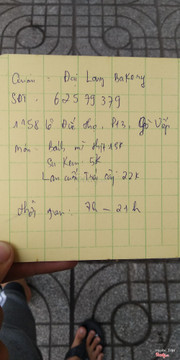 Quán: Đại Lang Bakery
SĐT: 62579379
1158 Lê Đức Thọ, P13, Gò Vấp
món: Bánh mì
Su Kem: 5K
Lan cuốn Trái cây: 22k
thời gian: 7h - 21h